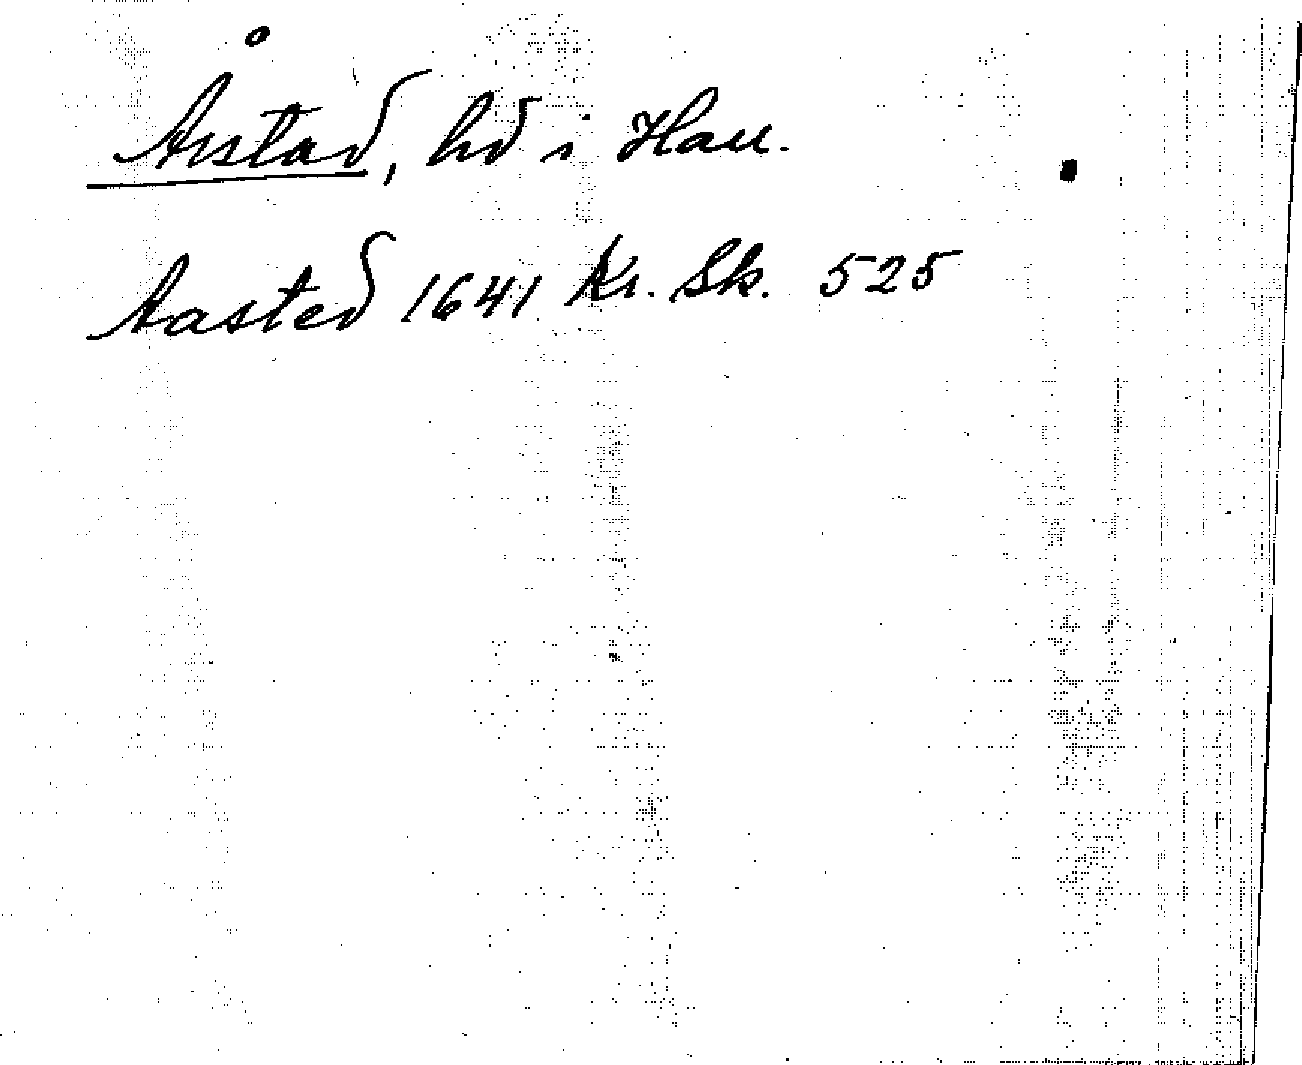 Årstad, hd i Hall.
Aasted 1641 Kr. Sk. 525